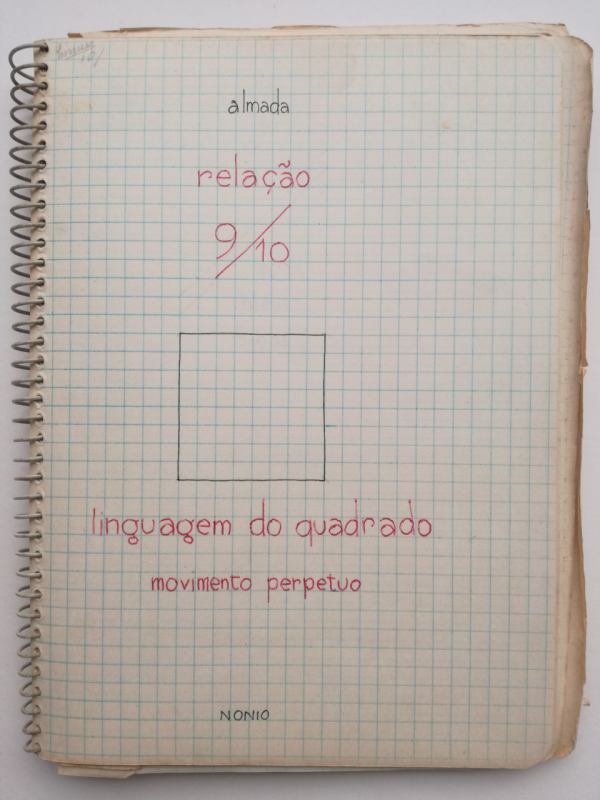 almada
relação
9/10
linguagem do quadrado
movimento perpetuo
NONIO